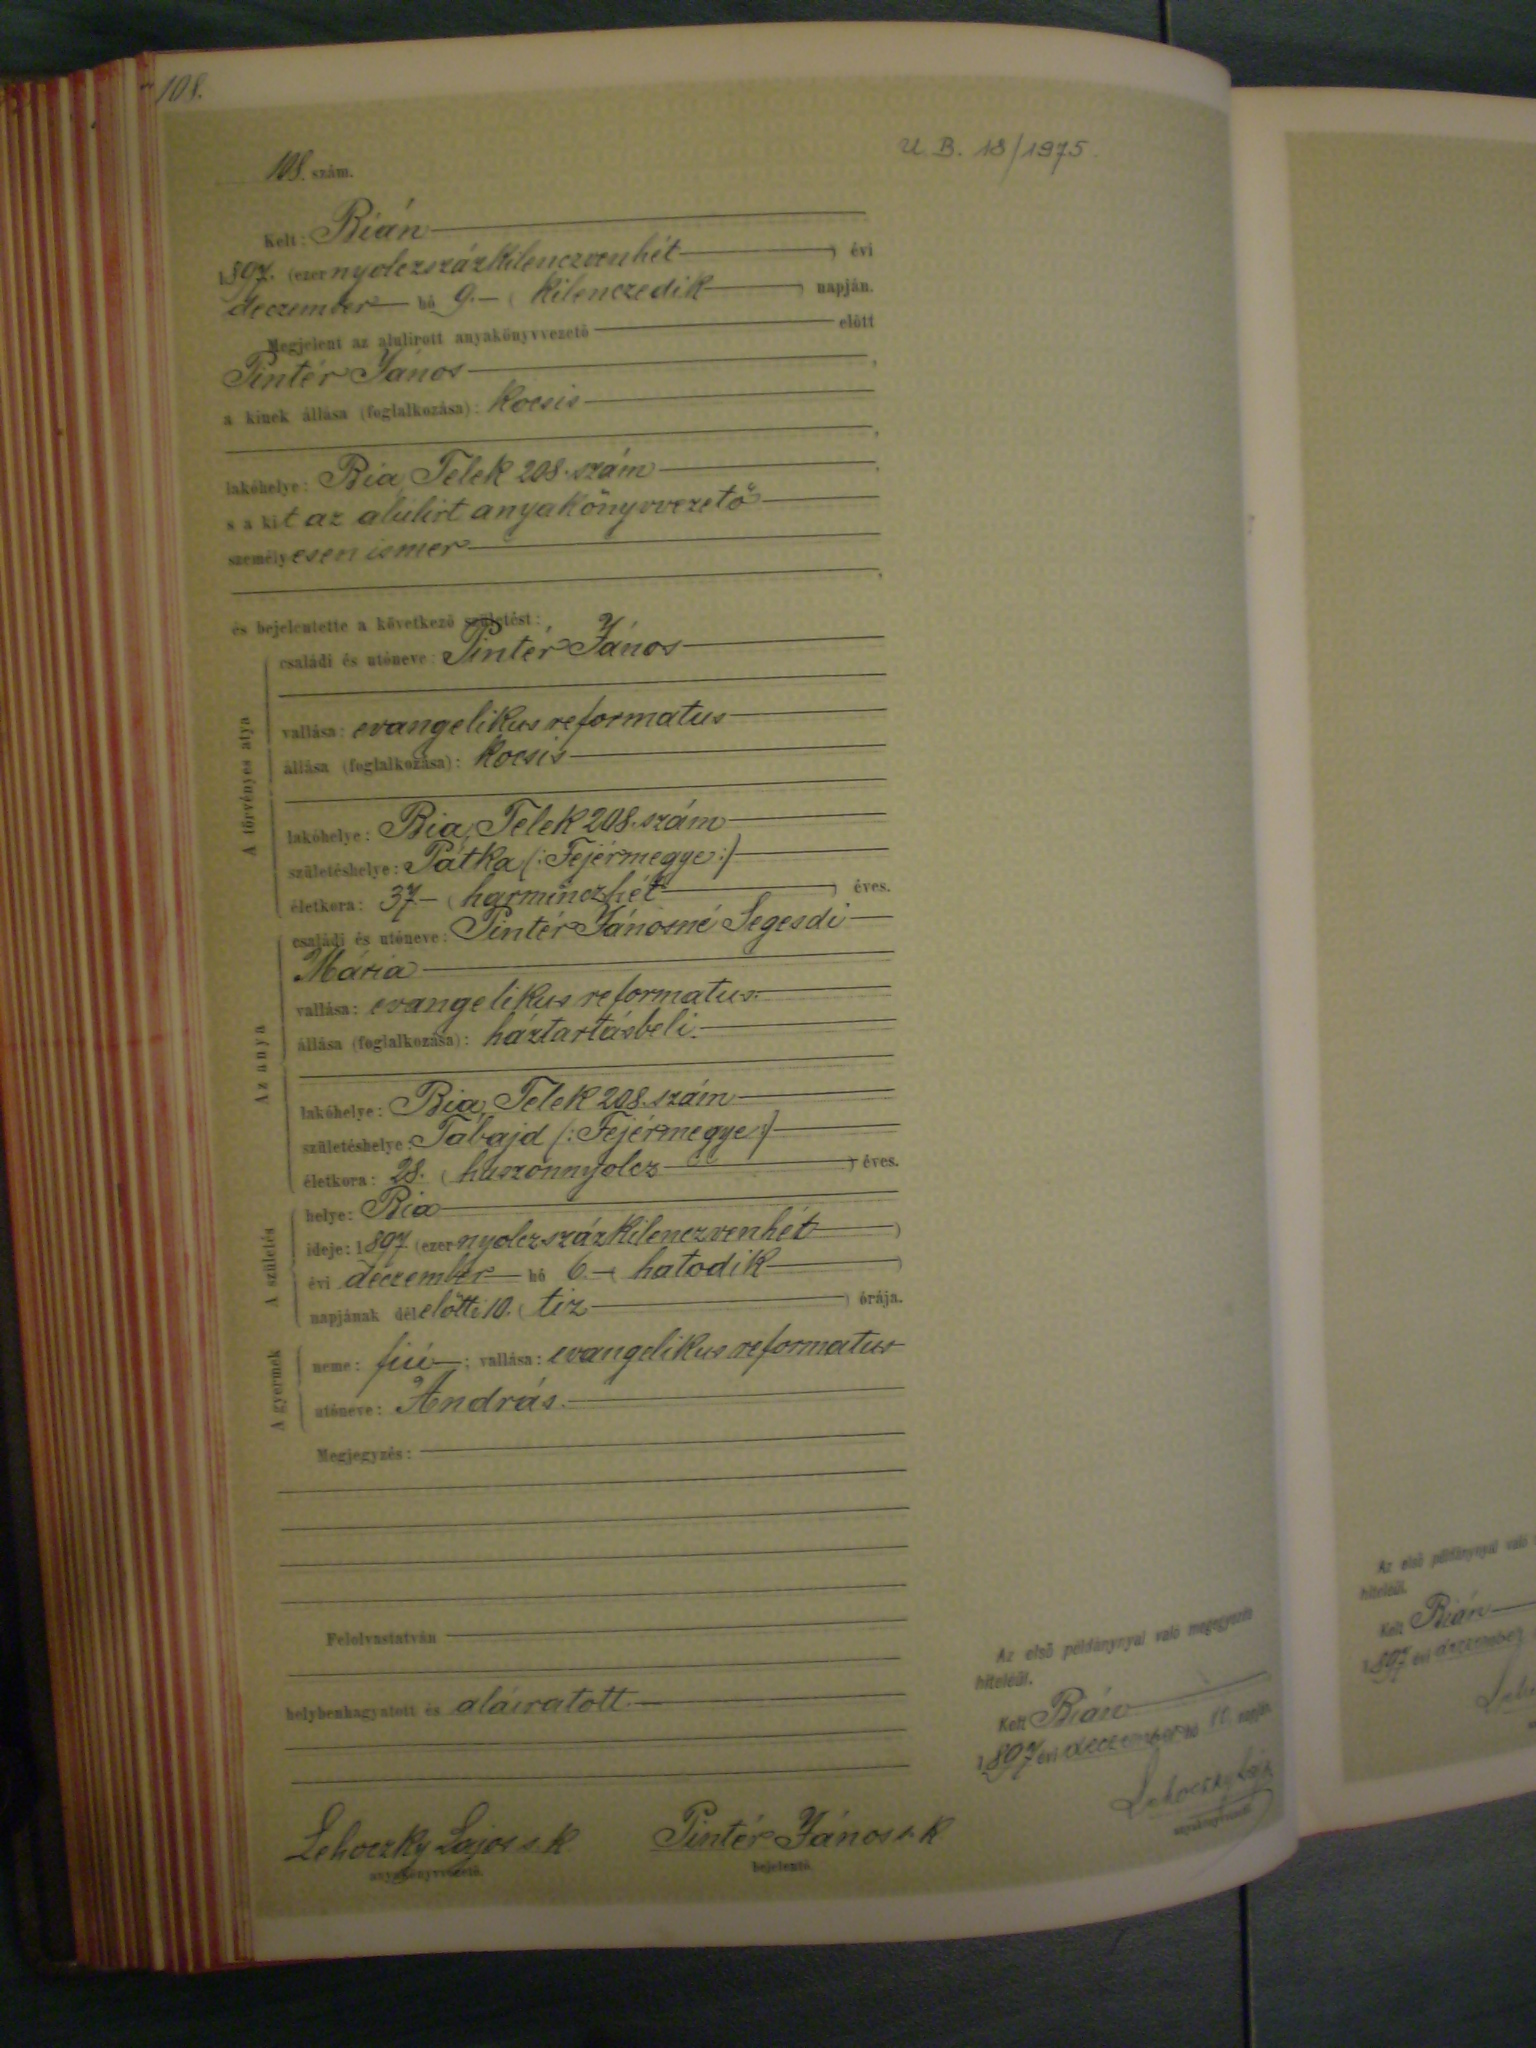 108.
U. B. 18/1975.
108. szám.
Kelt: Bián
1897. (ezernyolczszázkilenczvenhét) évi
deczember hó 9. (kilenczedik) napján.
Megjelent az alulirott anyakönyvvezető előtt
Pintér János,
a kinek állása (foglalkozása): kocsis
lakóhelye: Bia, Telek 208. szám,
s a kit az alulirt anyakönyvvezető
személyesen ismer
és bejelentette a következő születést:
A törvényes atya
családi és utóneve: Pintér János
vallása: evangelikus reformatus
állása (foglalkozása): kocsis
lakóhelye: Bia, Telek 208. szám
születéshelye: Pátka (: Fejérmegye :)
életkora: 37 (harminczhét) éves.
Az anya
családi és utóneve: Pintér Jánosné Segesdi
Mária
vallása: evangelikus reformatus.
állása (foglalkozása): háztartásbeli.
lakóhelye: Bia, Telek 208. szám
születéshelye: Tabajd (: Fejérmegye :)
életkora: 28. (huszonnyolcz) éves.
A születés
helye: Bia
ideje: 1897 (ezernyolczszázkilenczvenhét)
évi deczember hó 6. (hatodik)
napjának délelőtti 10. (tiz) órája.
A gyermek
neme: fiú; vallása: evangelikus reformatus
utóneve: András.
Megjegyzés:
Felolvastatván
helybenhagyatott és aláiratott.
Lehoczky Lajos s. k
anyakönyvvezető.
Pintér János s. k
bejelentő.
Az első példánynyal való megegyezés
hiteléül.
Kelt Bián
1897 évi deczember hó 10. napján.
Lehoczky Lajos
anyakönyvvezető
Az első példánynyal való
hiteléül.
Kelt Bián
1897 évi deczember